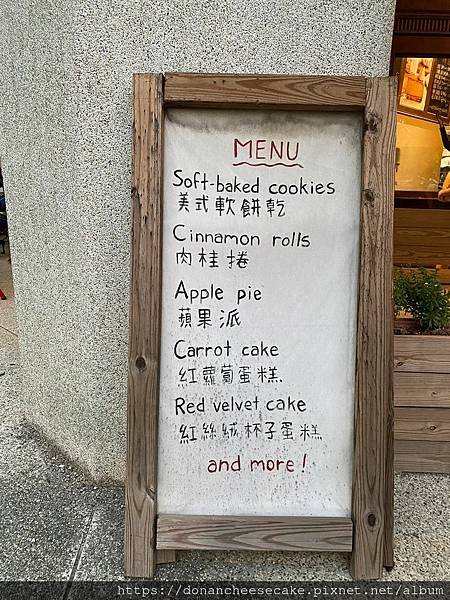 MENU
Soft-baked cookies
美式軟餅乾
Cinnamon rolls
肉桂捲
Apple pie
蘋果派
Carrot cake
紅蘿蔔蛋糕
Red velvet cake
紅絲絨杯子蛋糕
and more!
https://donancheesecake.pixnet.net/album